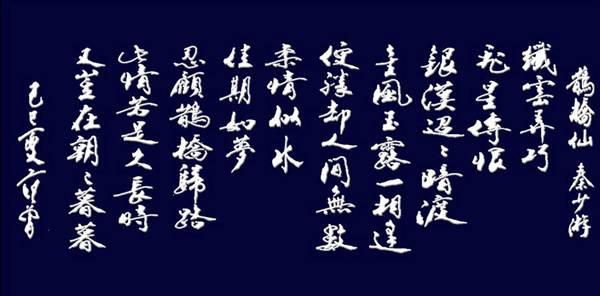 鵲橋仙 秦少游
纖雲弄巧
飛星傳恨
銀漢迢々暗渡
金風玉露一相逢
便勝却人間無數
柔情似水
佳期如夢
忍顧鵲橋歸路
兩情若是久長時
又豈在朝々暮暮
己巳夏